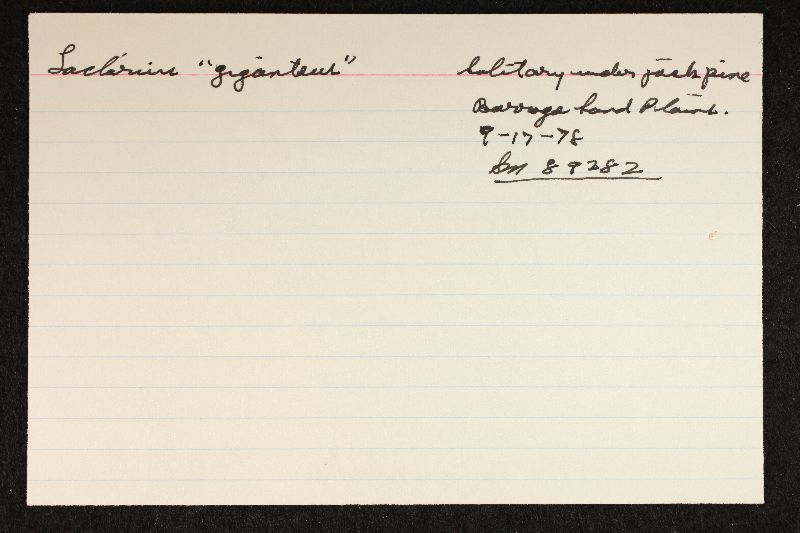 Lactarius "giganteus"
Solitary under jack pine
Baraga Sand Plains.
9-17-78
Sm 89282